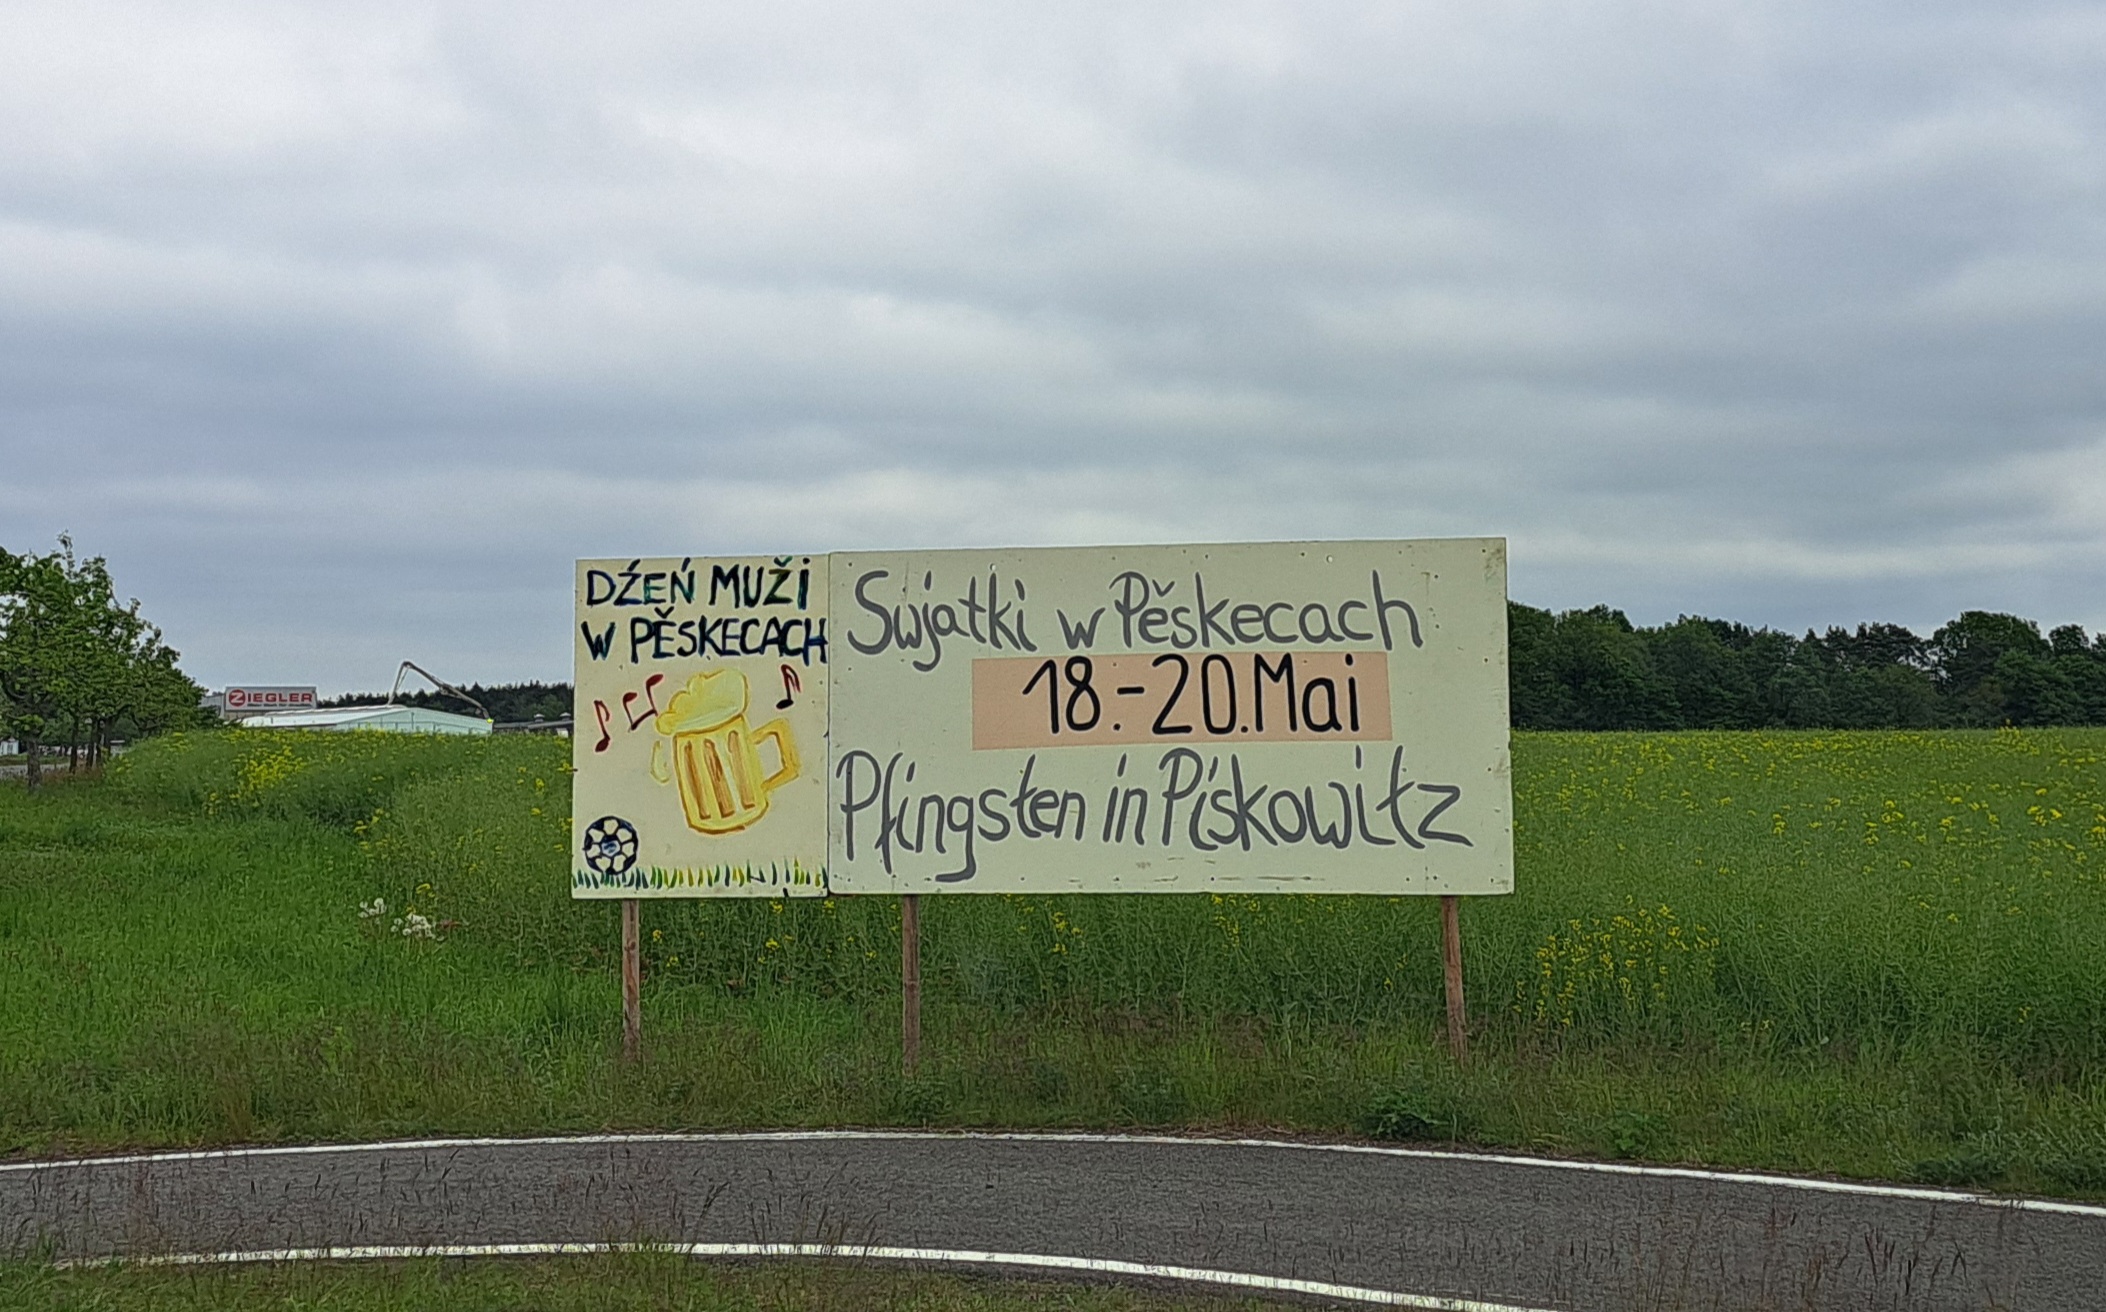 DŹEŃ MUŽI
W PĚSKECACH
Swjatki w Pěskecach
18.-20.Mai
Pfingsten in Piskowitz
ZIEGLER